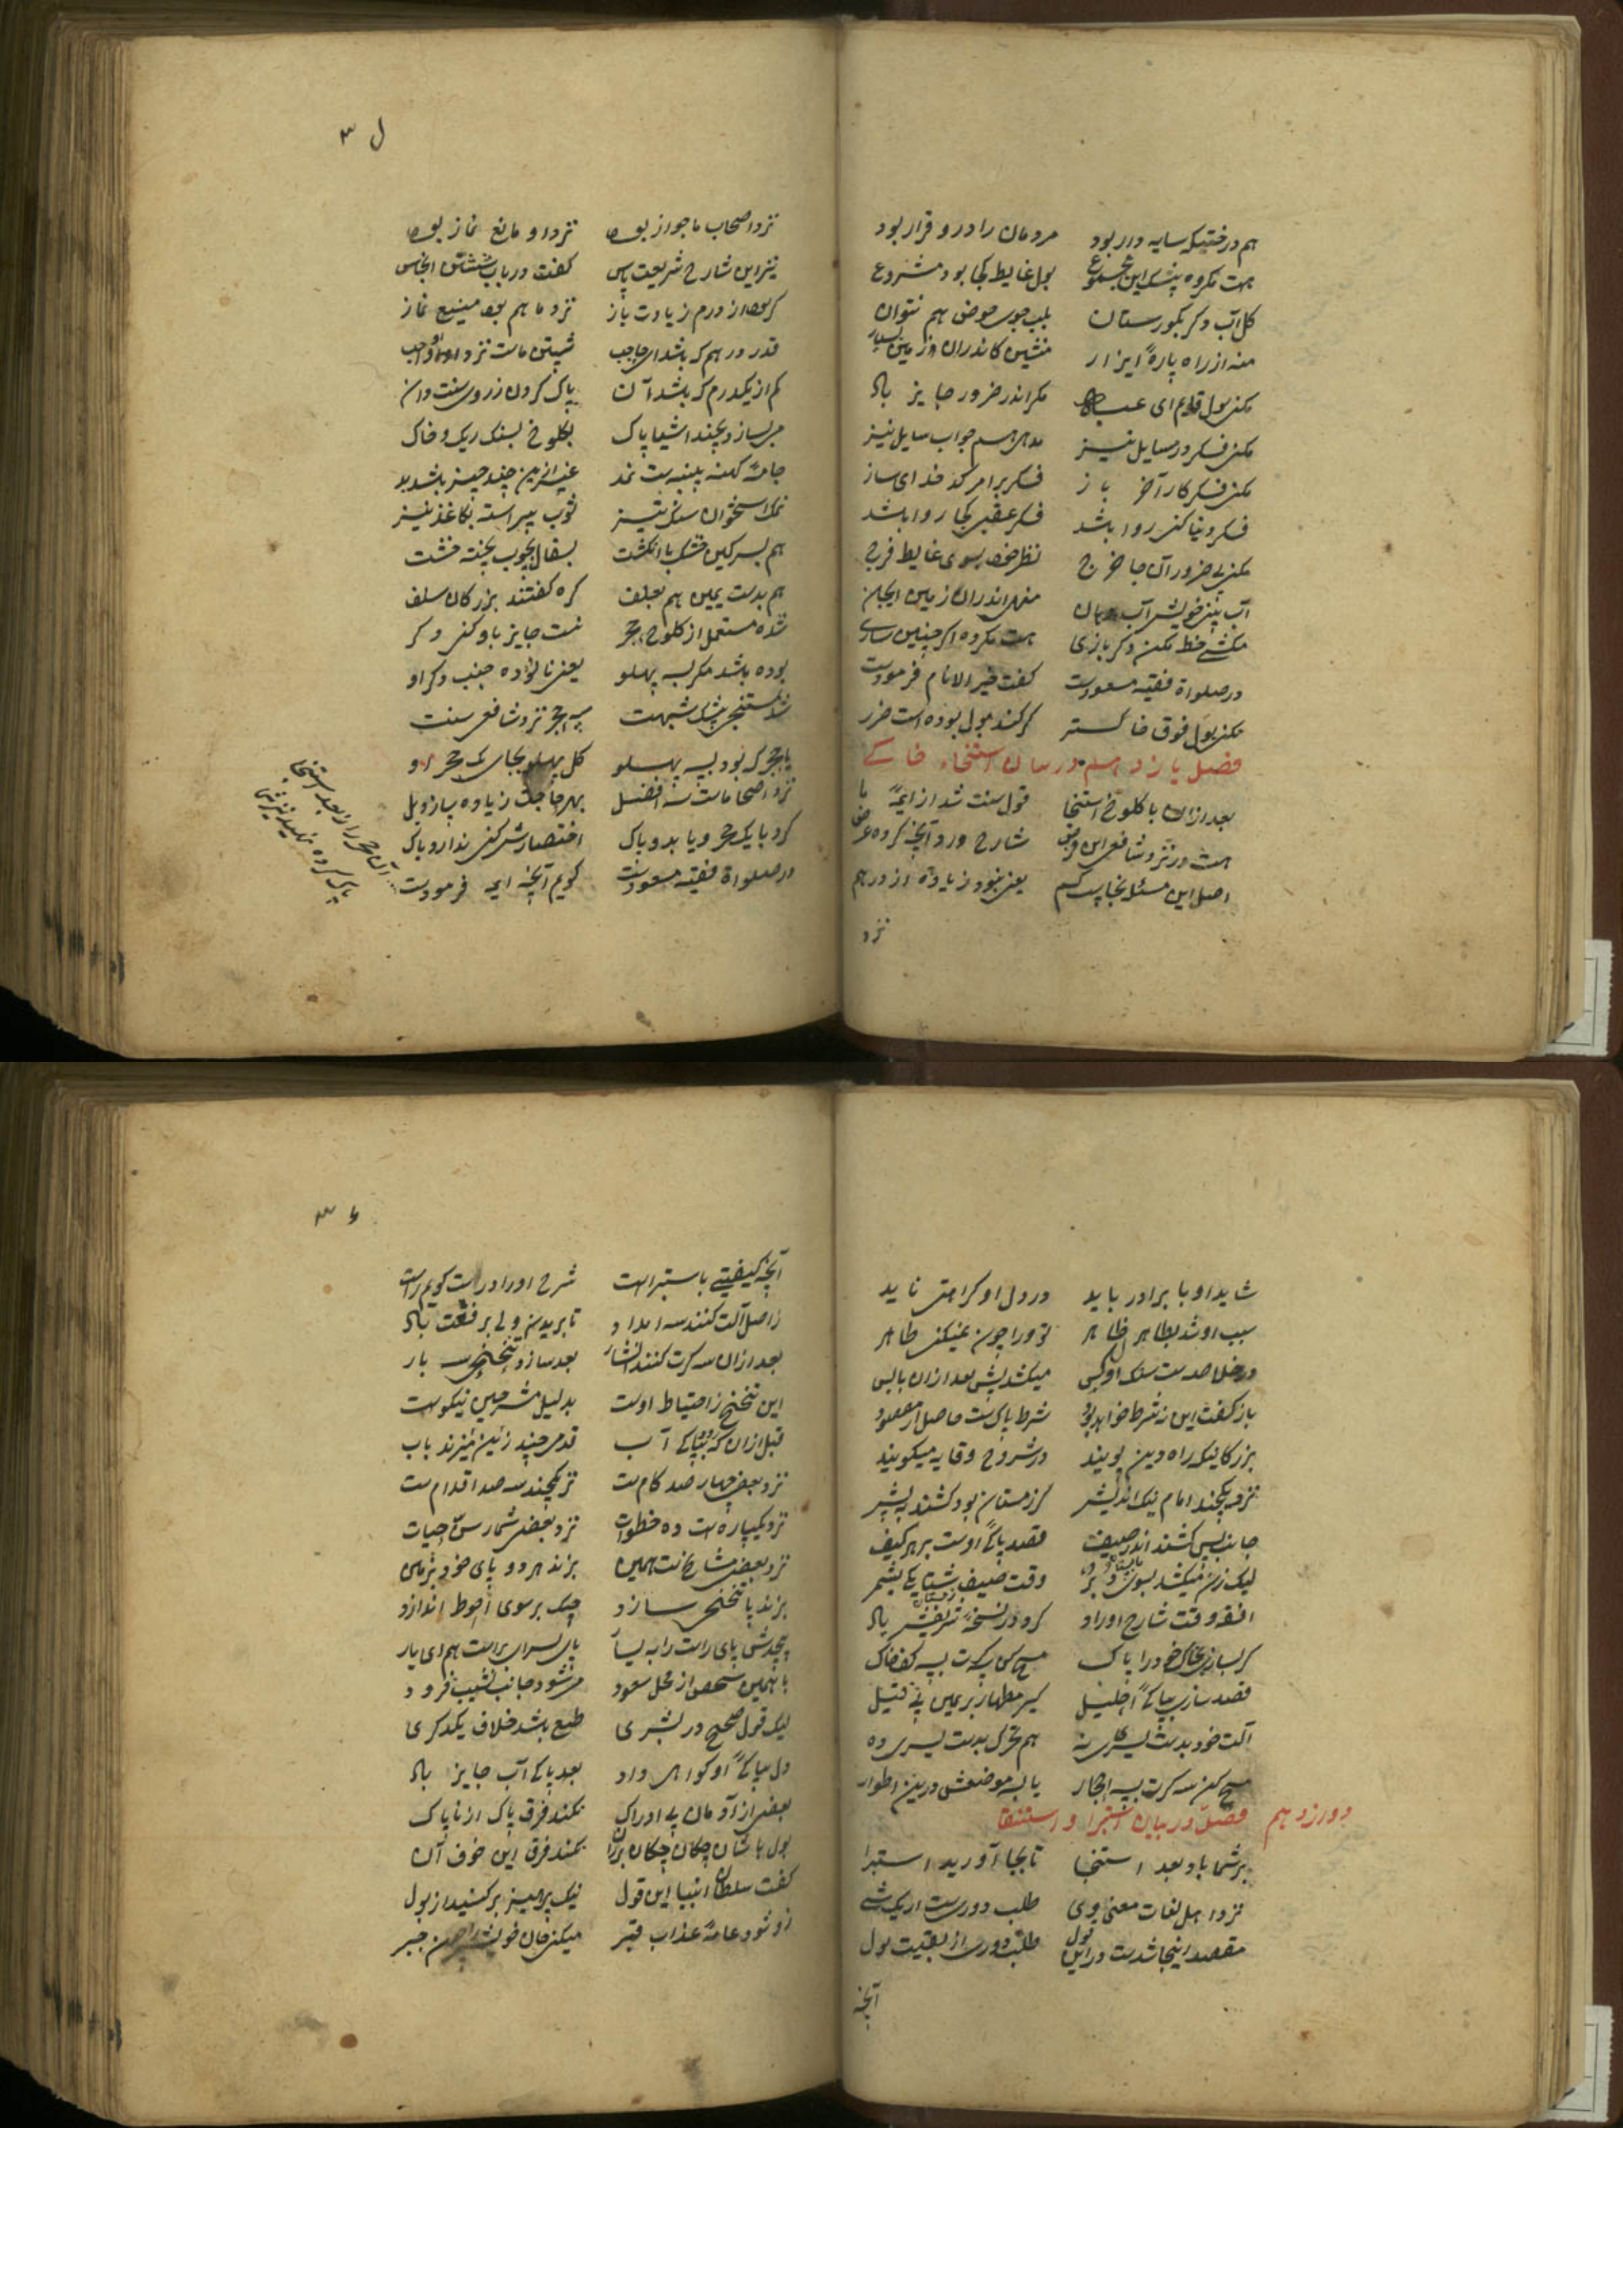 هم درختیکه سایه دار بود مردمان را درو قرار بود
هست مکروه بیشک این مجموع بول غایط کجا بود مشروع
کل آب و کر بکورستان بلب جوی حوض هم نتوان
منه از راه پارهٔ ایزار منشین کاندران زمین بسیار
مکن بول قایم ای مکر اندر ضرور جایز باد
مکن فکر در مسایل نیز مده هم جواب سایل نیز
مکن فکر کار آخر باز فکر برامر کد خدای ساز
فکر دنیا کنی روا باشد فکر عقبی کجا روا باشد
مکن بی ضرور آن جا خرج نظر خود بسوی غایط فرج
آب بینی خویش آب دهان منه اندران زمین ایجان
مکشی خط مکن دکر بازی هست مکروه اکر چنین سازی
در صلواة فقیه مسعودست کفت خیر الانام فرمودست
مکن بول فوق خاکستر کر کند بول بوده است ضرر
فصل یازدهم در بیان استنجاء خاکے
بعد ازان با کلوخ استنجا قول سنت شد از ایمهٔ ما
هست در نزد شافعی این فرض شارح ورد آنچه کرده عرض
اصل این مسئله نجاست کم یعنی نبود زیاده از درهم
نزد
ل ۳
نزد اصحاب ما جواز بود نزد او مانع نماز بود
نیز این شارح شریعت پس کفت در باب انجاس
کر بود از درم زیادت باز نزد ما هم بود منیع نماز
قدر درهم که باشد ای حاجب شستن ماست نزد او واجب
کم از یکدرم که باشد آن پاک کردن ز روی سنت دان
میسازد بچند اشیا پاک بکلوخ بسنک ریک و خاک
جامهٔ کهنه پنبه پست نمد غیر ازین چند چیز باشد بد
نمک استخوان سنک تیز ثوب پیراسته بکاغذ نیز
هم بسرکین خشک با انکشت بسفال بچوب پخته خشت
هم بدست یمین هم بعلف کره کفتند بزرکان سلف
شده مستعمل از کلوخ حجر نیست جایز باو کنی دکر
بوده باشد مکر سه پهلو یعنی نالوده جنب دکر او
شد مستنجی بیشک شبهت سه حجر نزد شافعی سنت
یا حجر که بود سه پهلو کل پهلو بجای یک حجر او
نزد اصحا ماست سه افضل بهر حاجت زیاده سازو بل
کرد با یک حجر و یا بدو پاک اختصارش کنی ندارد باک
در صلواة فقیه مسعودست کویم آنچه ایمه فرمودست
آن حجر را بعد استنجا
پاک کرده
شاید او با برادر باید در دل او کراهتی ناید
سبب او شد بظاهر ظاهر تو ورا چون نمیکنی طاهر
در خلاصه ست سنک اولی میکشد پیش بعد ازان با پس
باز کفت این نه شرط خواهد بود شرط پاکی ست حاصل از مقصود
بزرکانیکه راه دین پویند در شروح وقایه میکویند
نزد یکچند امام نیک اندیش کر زمستان بود کشند به پیش
جانب پس کشند اندر صیف قصد پاکی اوست بر هر کیف
لیک زن میکشد بسوی دبر وقت صیف شتا یکی بشمر
افقه وقت شارح اوراد کرد در نسخهٔ شریفش یاد
کر بسازی بخاک خود را پاک مسح کن سه کرت به کف خاک
قصد سازی بپاکی احلیل
آلت خود بدست یسری نه هم تحرک بدست یسری ده
مسح کن سه کرت به احجار یا به موضعش درین اطوار
دوازدهم فصل در بیان استبرا و استنقا
بر شما باد بعد استنجا تا بجا آورید استبرا
نزد اهل لغات معنی وی طلب دوریست از یک شے
مقصد اینجا شدست در این قول طلب دوری از بقیت بول
آنچه
۳۶
آنچه کیفیتے باستبراست شرح اوراد راست کویم راست
ز اصل آلت کنند سه امداد تا بریدن ولی برفعت باد
بعد ازان سه کرت کنند انتشار بعد سازد تنحنحی سه بار
این تنحنح ز احتیاط اوست بدلیل مشرحین نیکوست
قبل ازان که به پاکی آب قدمی چند زنین میزند باب
نزد بعضی چهار صد کام ست نزد یکچند سه صد اقدام ست
نزد یکپاره ست ده خطوات نزد بعضی شمار سن حیات
نزد بعضی مشایخ ست همین بزند هر دو پای خود بزمین
بزند پا تنحنحی سازد چنک بر سوی احوط اندازد
پیچدش پای راست را به یسار پای یسرای براست هم ای یار
با همین شخص از محل صعود می شود جانب نشیب فرود
لیک قول صحیح در بشری طبع باشد خلاف یکدکری
دل بپاکی او کواهی داد بعد پاکی آب جایز باد
بعضی از آدمان بی ادراک نکند فرق پاک از ناپاک
بول باشان چکان چکان بر ران نکند فرق این خوف آن
کفت سلطان انبیا این قول نیک پرهیز بر کنید از بول
زو شود عامهٔ عذاب قبر